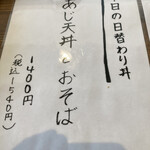 日の日替わり丼
あじ天丼とおそば
1400円
(税込1540円)